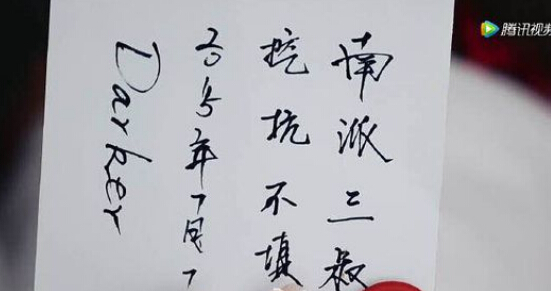 南派三叔
挖抗不填
2015年1月1
Darker
腾讯视频